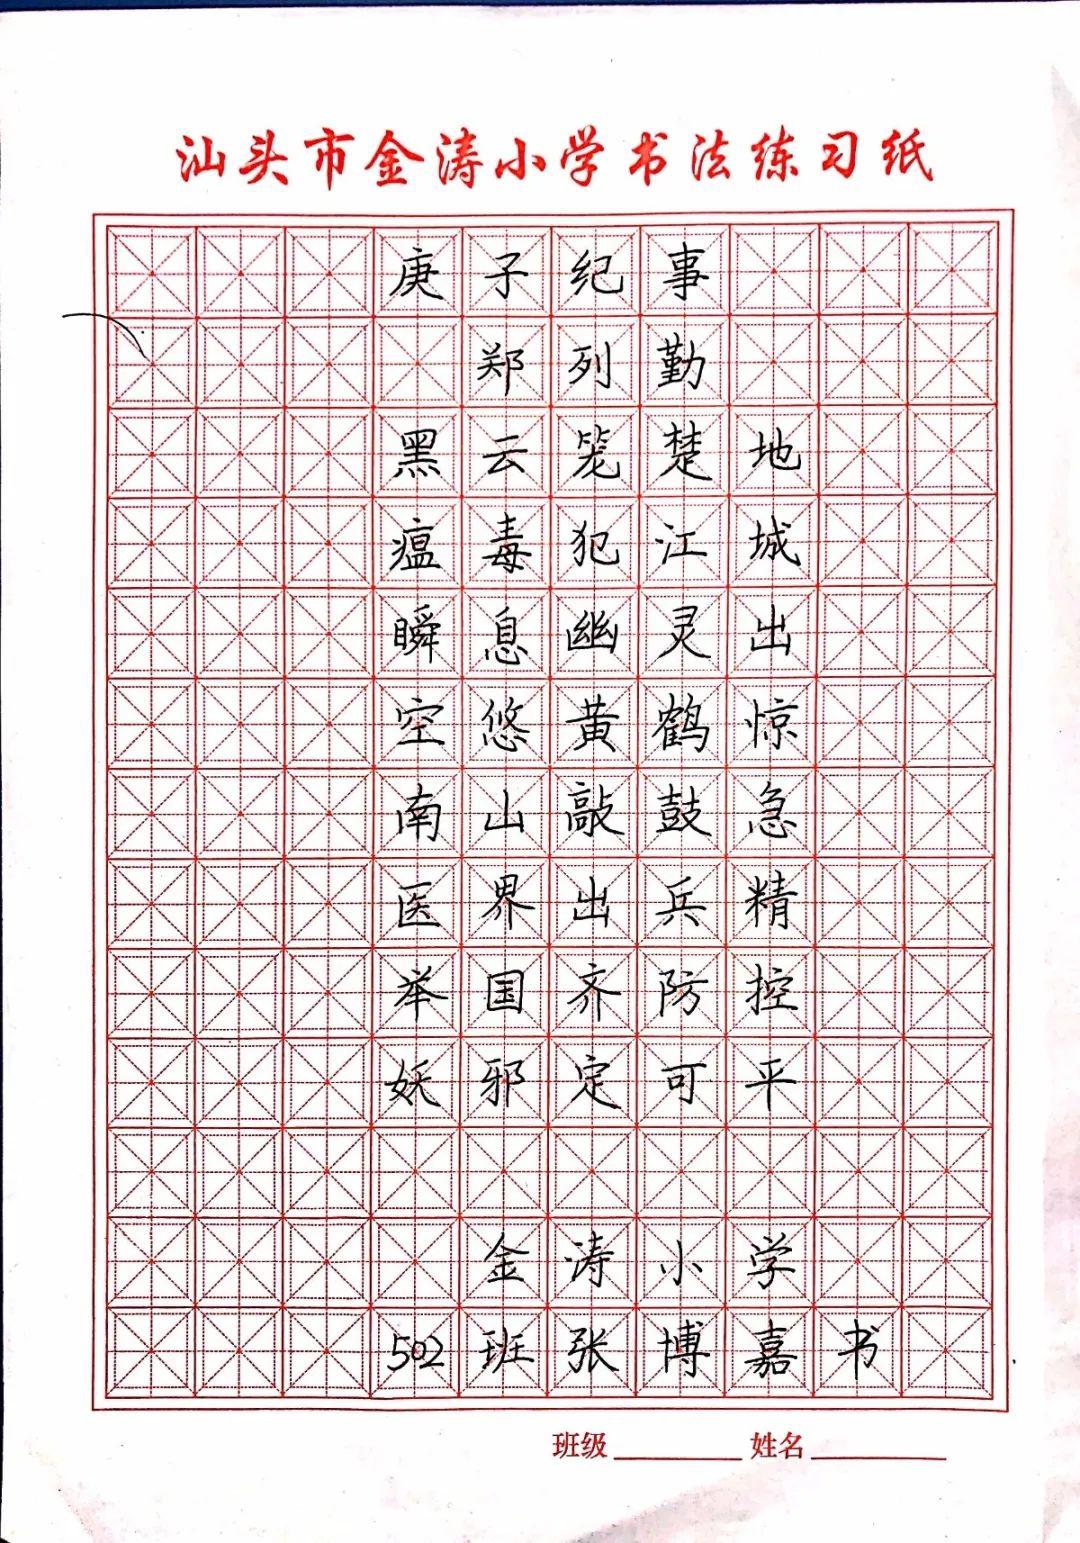 汕头市金涛小学书法练习纸
庚子纪事
郑列勤
黑云笼楚地
瘟毒犯江城
瞬息幽灵出
空悠黄鹤惊
南山敲鼓急
医界出兵精
举国齐防控
妖邪定可平
金涛小学
502班张博嘉书
班级 姓名